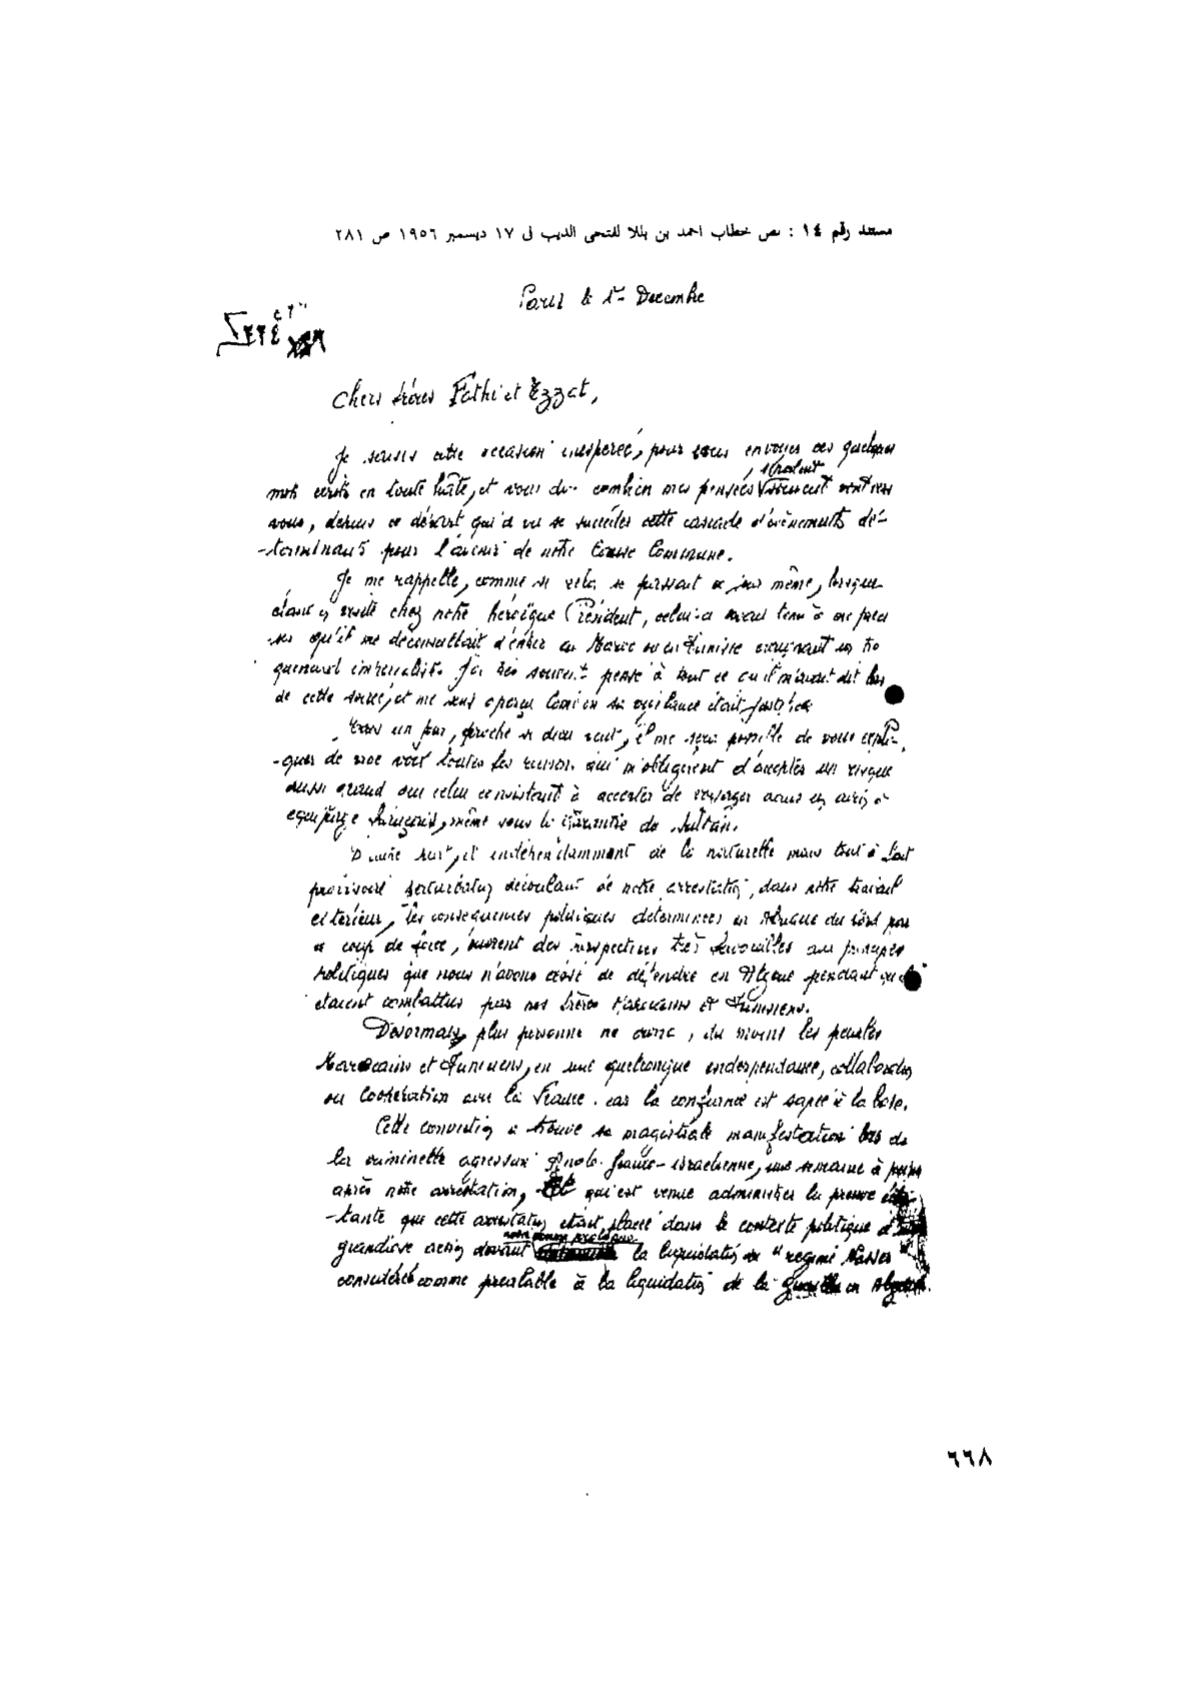 مستند رقم ١٤ : نص خطاب احمد بن بللا لفتحى الديب فى ١٧ ديسمبر ١٩٥٦ ص ٢٨١
Paris le Decembre
Chers frères Fathi et Ezzat,
Je saisis cette occasion inesperée, pour vous envoyer ces quelques
mots écrits en toute hâte, et vous dire combien mes pensées vont vers
vous, depuis ce départ qui a vu se succéder cette cascade d'évènements dé-
-terminants pour l'avenir de notre Cause Commune.
Je me rappelle, comme si cela se passait ce jour même, lorsque
étant en visite chez notre héroïque Président, celui-ci avait tenu à me
qu'il me déconseillait d'entrer au Maroc ou en Tunisie craignant un
imperialiste. J'ai très souvent pensé à tout ce qu'il m'avait dit lors
de cette soirée, et me suis aperçu combien sa vigilance était justifiée
un jour, proche si dieu veut, il me sera possible de vous expli-
-quer de vive voix toutes les raisons qui m'obligèrent d'accepter un risque
aussi grand que celui consistant à accepter de voyager dans un avion à
equipage français, même sous la garantie du Sultan.
D'autre part, et indépendamment de la naturelle mais tout à fait
provisoire perturbation découlant de notre arrestation, dans notre travail
exterieur, les consequences politiques déterminées en Afrique du Nord par
ce coup de force, ouvrent des perspectives très favorables aux principes
politiques que nous n'avons cessé de défendre en Algerie pendant
étaient combattus par nos frères Marocains et Tunisiens.
Désormais, plus personne ne croira, du moins les peuples
Marocains et Tunisiens, en une quelconque independance, collaboration
ou Coopération avec la France. car la confiance est sapée à la base.
Cette conviction a trouvé sa magistrale manifestation lors de
la criminelle agression Anglo-franco-israelienne, une semaine à peine
après notre arrestation, qui est venue administrer la preuve
-tante que cette arrestation était placée dans le contexte politique
grandiose action devant la liquidation du "regime Nasser"
considéré comme prealable à la liquidation de la
٦٦٨